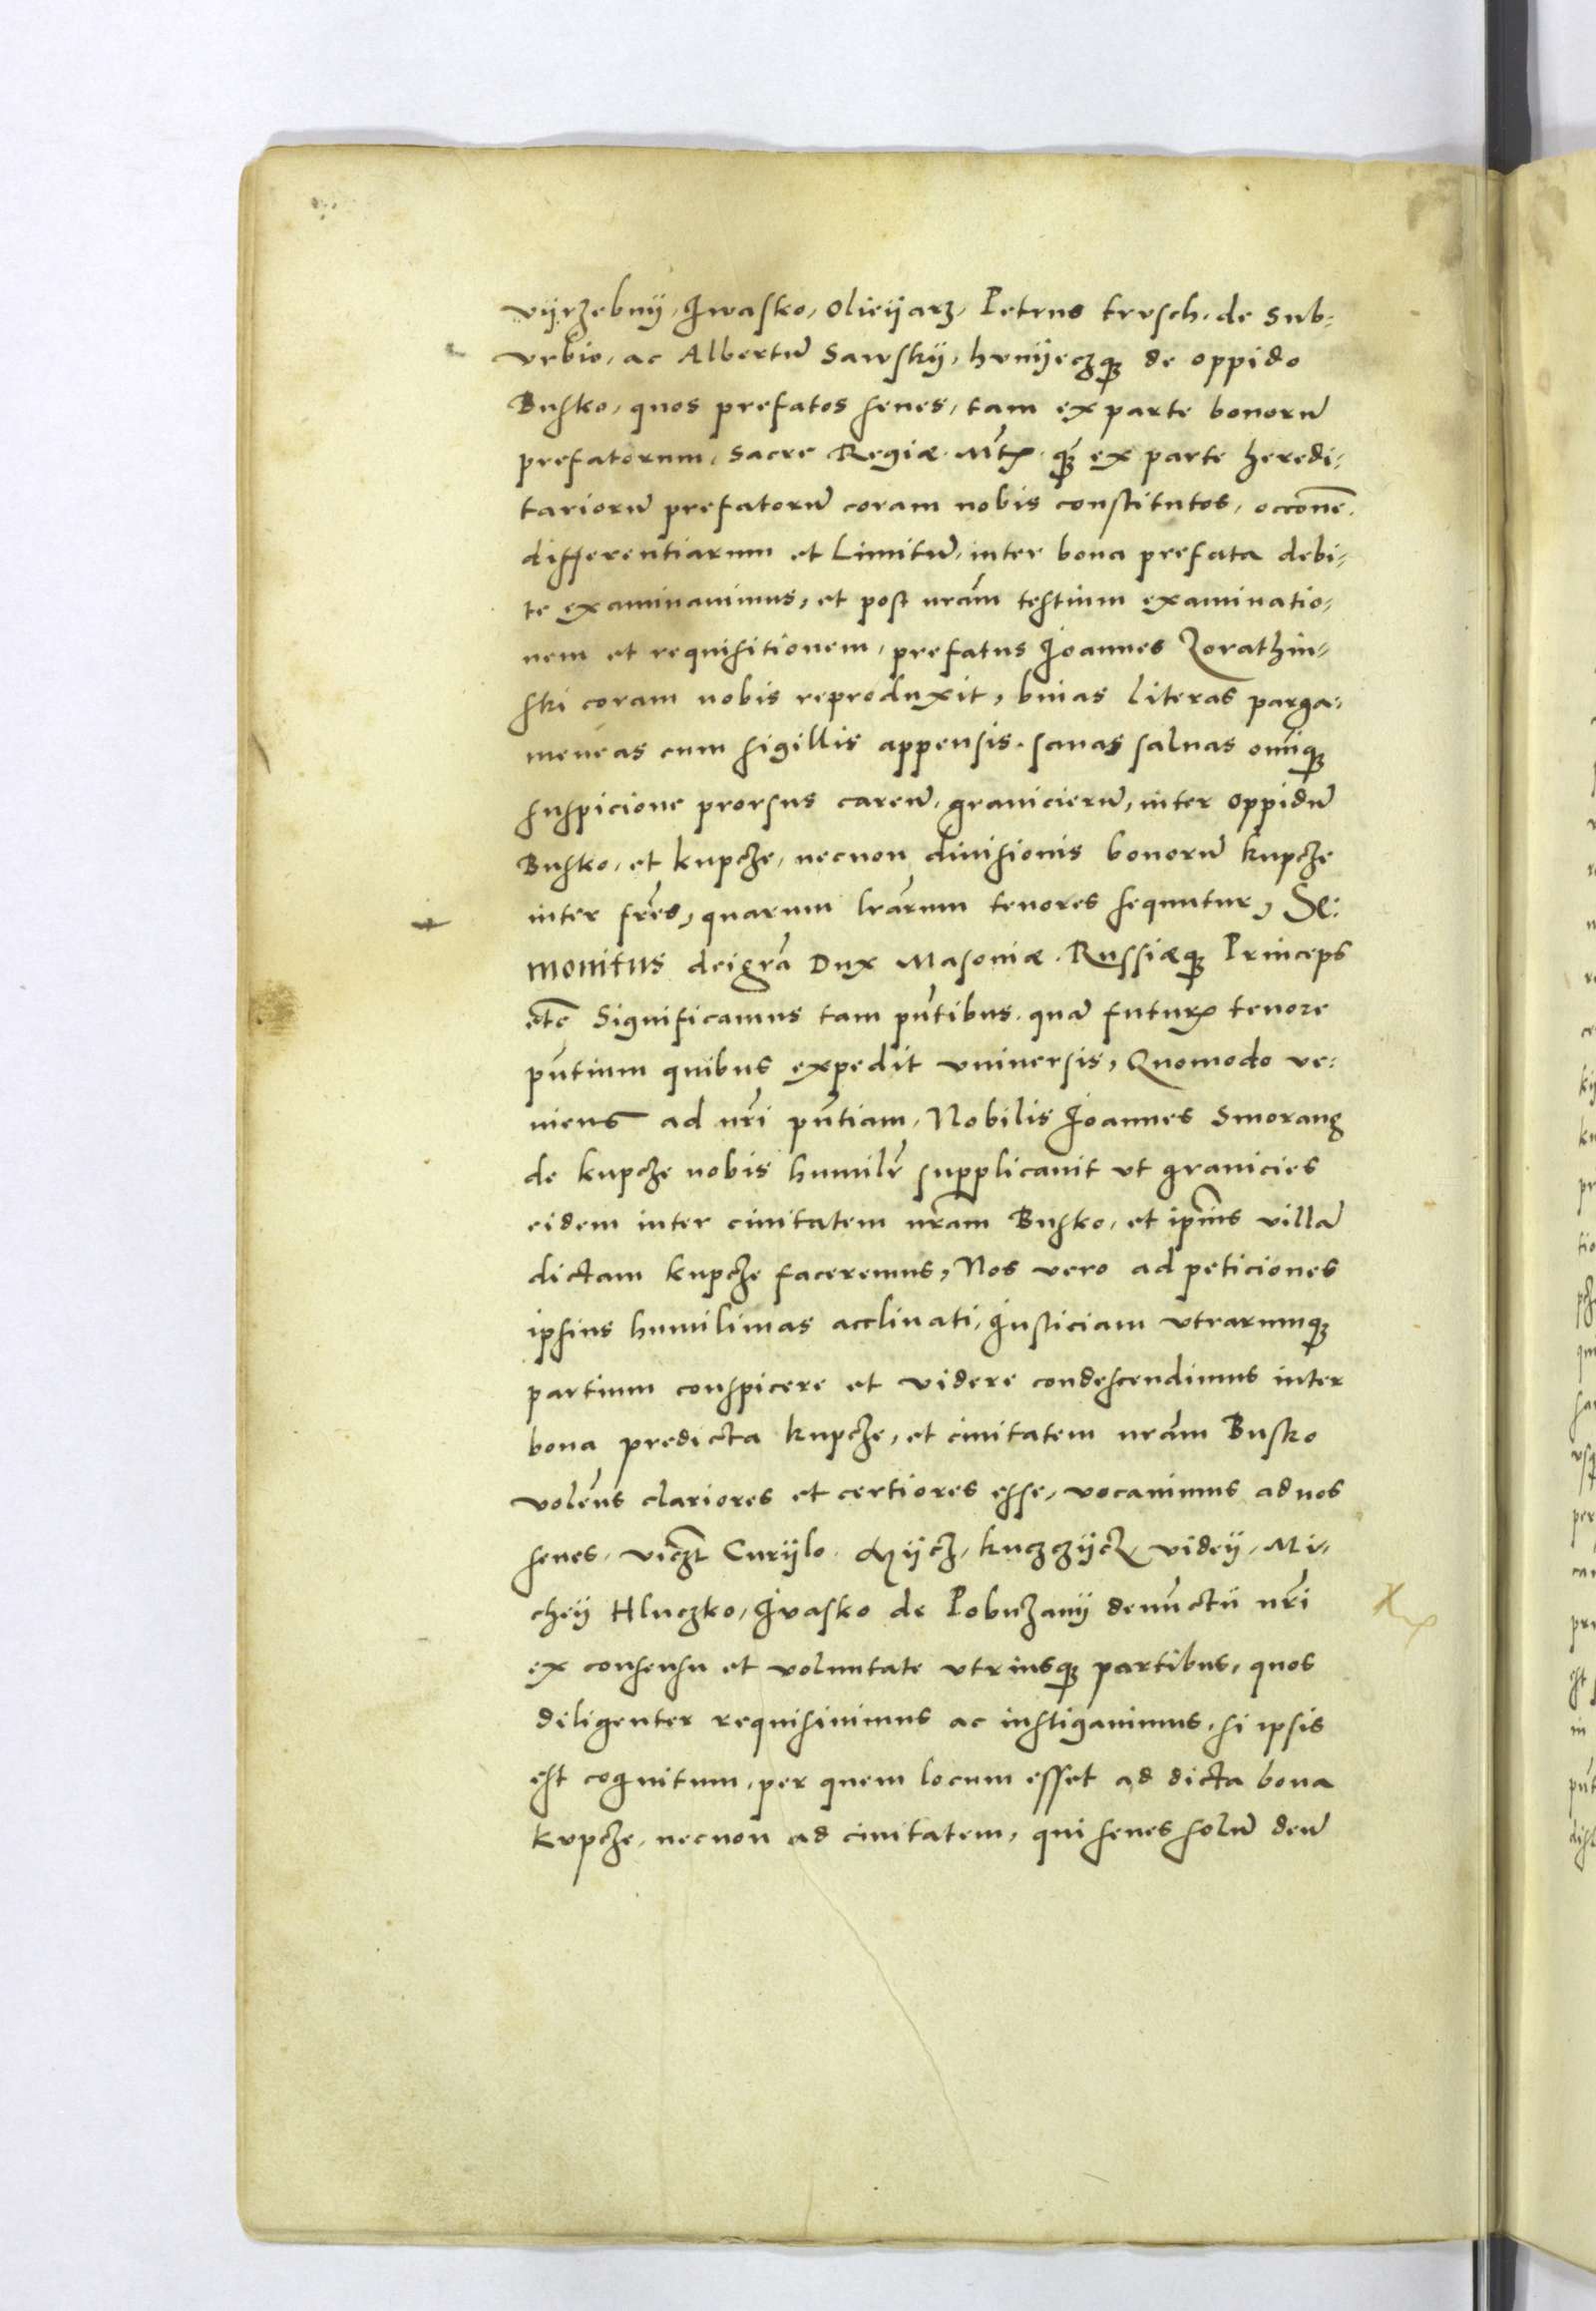 vÿrzebnÿ, Iwasko, Olieÿarz, Petrus trusch. de Sub-
vrbio, ac Albertū Sawskÿ, hvnÿeczq; de oppido
Busko, quos prefatos senes, tam ex parte bonorū
prefatorum, Sacre Regiæ Mtis. q̄; ex parte heredi-
tariorū prefatorū coram nobis constitutos, occōne
differentiarum et Limitū, inter bona prefata debi-
te examinauimus, et post nrām testium examinatio-
nem et requisitionem, prefatus Ioannes Zorathin-
ski coram nobis reproduxit, binas literas parga-
meneas cum sigillis appensis. sanas saluas omīq;
suspicione prorsus careñ, granicierū, inter oppidū
Busko, et kupcze, necnon diuisionis bonorū kupcze
inter frēs, quarum lrārum tenores sequntur, Se-
mouitus deigrā Dux Masouiæ. Russiæq; Princeps
etc Significamus tam pñtibus. quā futuris tenore
pñtium quibus expedit vniuersis, Quomodo ve-
niens ad nrī pñtiam, Nobilis Ioannes Smorang
de kupcze nobis humilr̄ supplicauit vt granicies
eidem inter ciuitatem nrām Busko, et ipīus villā
dictam kupcze faceremus, Nos vero ad peticiones
ipsius humilimas acclinati, Iusticiam vtrarumq;
partium conspicere et videre condescendimus inter
bona predicta kupcze, et ciuitatem nrām Busko
volens clariores et certiores esse, vocauimus ad nos
senes. viczt Curÿlo. kuczczÿcz, videÿ, Mi-
cheÿ Hluczko, Ivasko de Pobuzanÿ nrī
ex consensu et voluntate vtriusq; partibus, quos
diligenter requisiuimus ac instigauimus, si ipsis
est cognitum, per quem locum esset ad dicta bona
kvpcze, necnon ad ciuitatem, qui senes solū deū